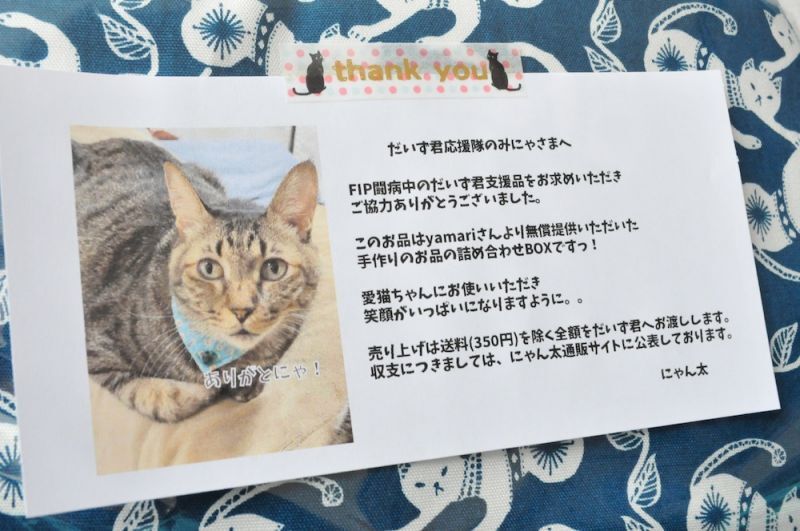 thank you
だいず君応援隊のみにゃさまへ
FIP闘病中のだいず君支援品をお求めいただき
ご協力ありがとうございました。
このお品はyamariさんより無償提供いただいた
手作りのお品の詰め合わせBOXですっ！
愛猫ちゃんにお使いいただき
笑顔がいっぱいになりますように。。
売り上げは送料(350円)を除く全額をだいず君へお渡しします。
収支につきましては、にゃん太通販サイトに公表しております。
にゃん太
ありがとにゃ！